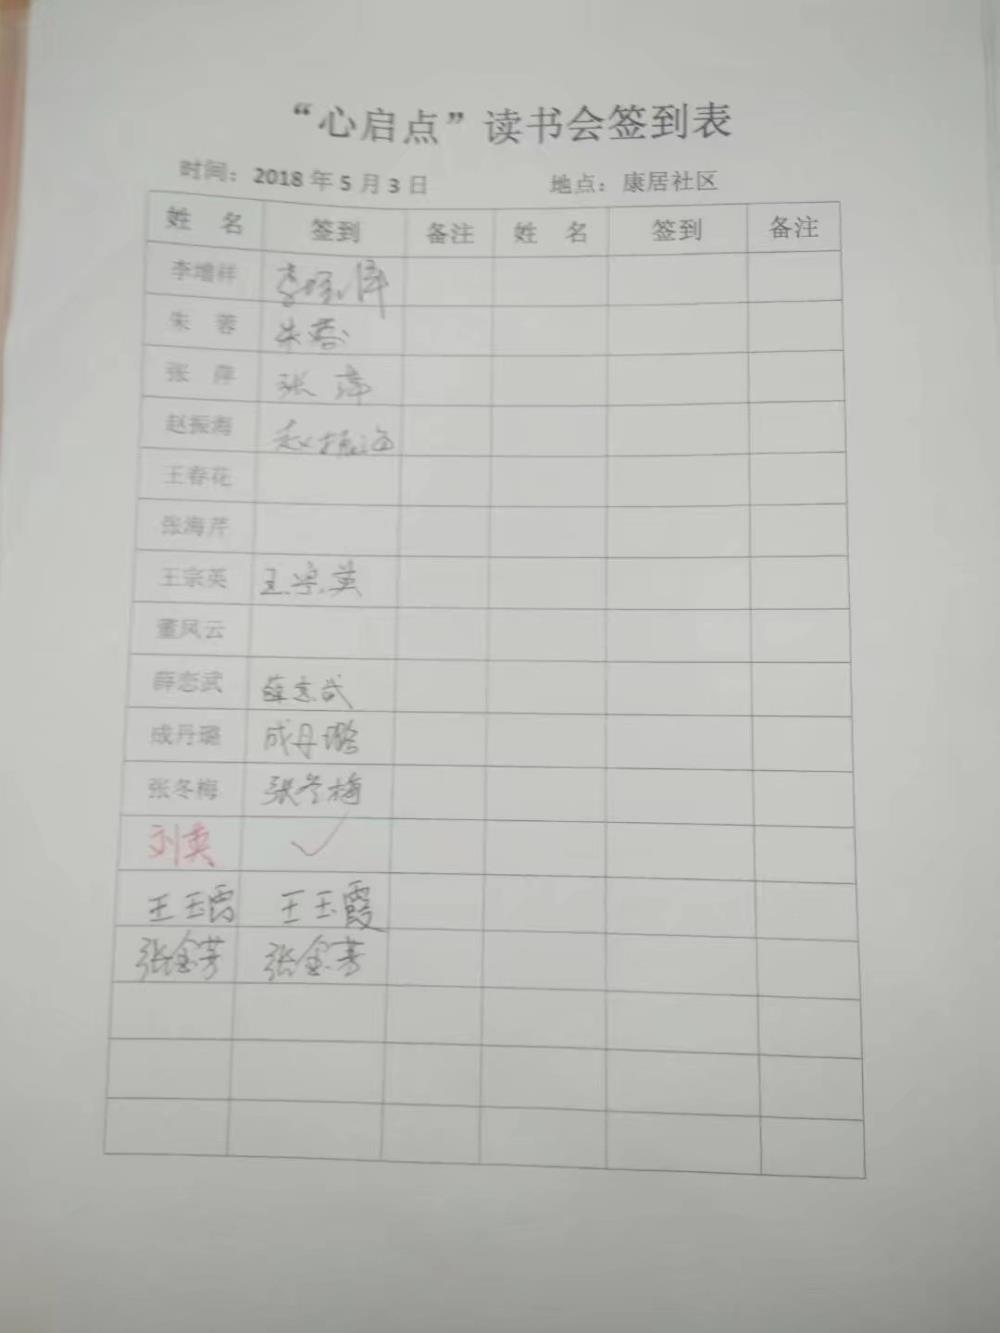 “心启点”读书会签到表
时间：2018年5月3日 地点：康居社区
姓 名 签到 备注 姓 名 签到 备注
李增祥 李增祥
朱 蓉 朱蓉
张 萍 张萍
赵振海 赵振海
王春花
张海芹
王宗英 王宗英
董凤云
薛志武 薛志武
成丹璐 成丹璐
张冬梅 张冬梅
刘英 ✓
王玉霞 王玉霞
张金芳 张金芳